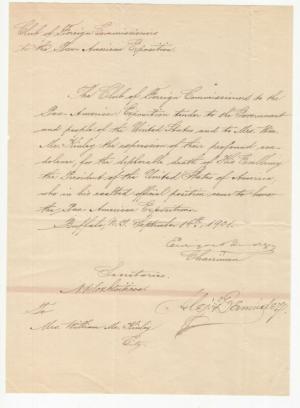 Club of Foreign Commissioners
to the Pan-American Exposition.
The Club of Foreign Commissioners to the
Pan-American Exposition tender to the Government
and people of the United States and to Mrs. Wm.
Mc Kinley the expression of their profound con-
dolence, for the deplorable death of His Excellency
the President of the United States of America,
who in his exalted official position came to honor
the Pan-American Exposition.
Buffalo, N.Y. September 14th, 1901.
Chairman
Secretaries.
To
Mrs. William Mc Kinley
City.